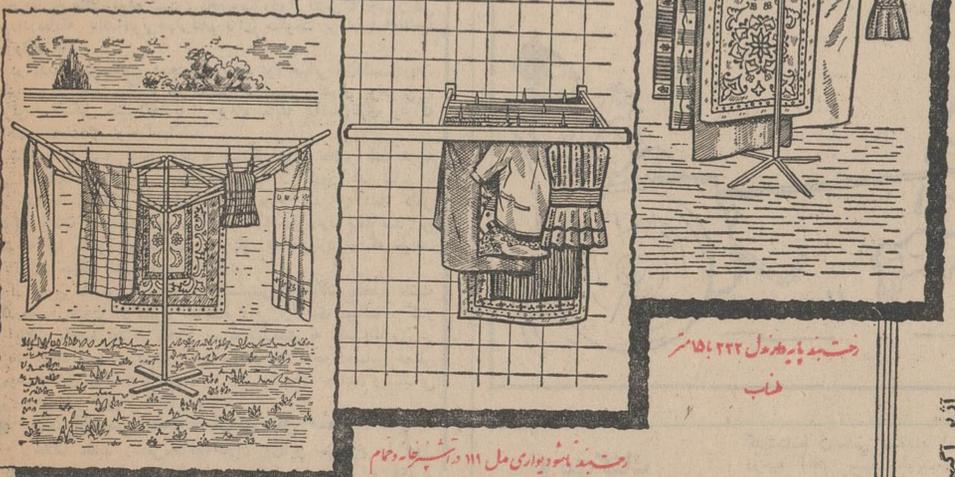 رختبند پایه‌دار مدل ۲۲۲ با ۱۵ متر
طناب
رختبند تاشو دیواری مدل ۱۱۱ در آشپزخانه و حمام